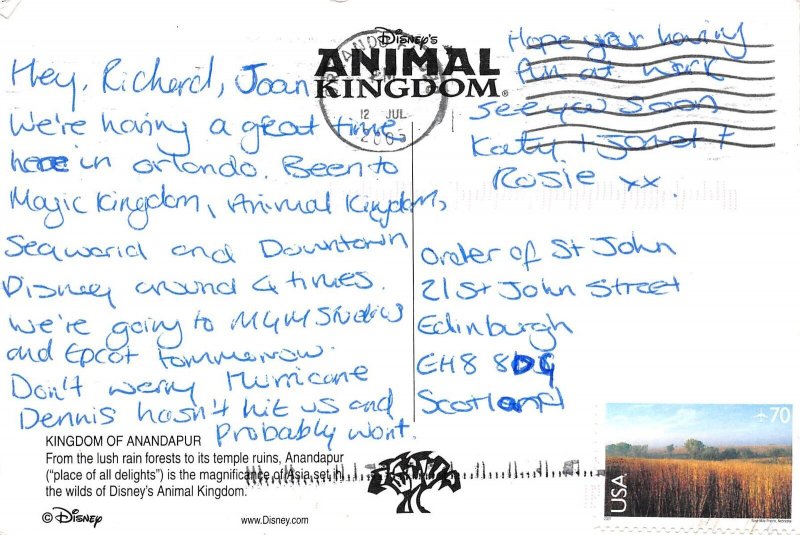 Disney's
ANIMAL
KINGDOM®
12 JUL
2005
Hey, Richard, Joan
We're having a great time
here in orlando. Been to
Magic Kingdom, Animal Kingdom,
Seaworld and Downtown
Disney around 4 times.
We're going to MGM Studios
and Epcot tommorrow.
Don't worry Hurricane
Dennis hasn't hit us and
Probably wont.
Hope your having
fun at work
see you soon
Katy + Janet +
Rosie xx
Order of St John
21 St John Street
Edinburgh
EH8 8DG
Scotland
KINGDOM OF ANANDAPUR
From the lush rain forests to its temple ruins, Anandapur
("place of all delights") is the magnificence of Asia set in
the wilds of Disney's Animal Kingdom.
© Disney
www.Disney.com
70
USA